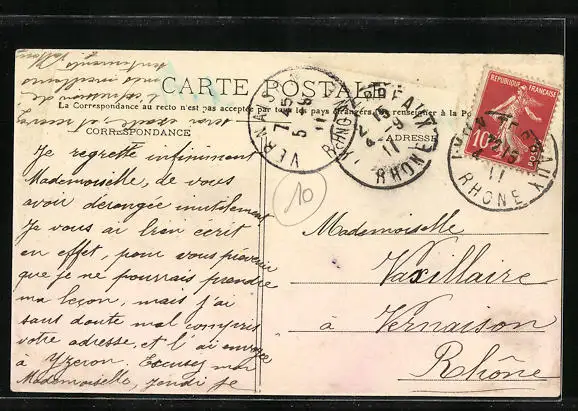 CARTE POSTALE
La Correspondance au recto n'est pas acceptée par tous les pays étrangers (se renseigner à la Po
CORRESPONDANCE
ADRESSE
Je regrette infiniment
Mademoiselle, de vous
avoir dérangée inutilement
Je vous ai bien écrit
en effet, pour vous prévenir
que je ne pourrais prendre
ma leçon, mais j'ai
sans doute mal compris
votre adresse, et l'ai envoyée
à Yzeron. Excusez moi
Mademoiselle, jeudi je
serai exacte, et recevez
l'expression de
mes meilleurs
sentiments
10
Mademoiselle
Vaxillaire
à Vernaison
Rhône
VERNAISON
7 45
5 -9
11
RHONE
RHONE
RHONE
11
REPUBLIQUE FRANÇAISE
10